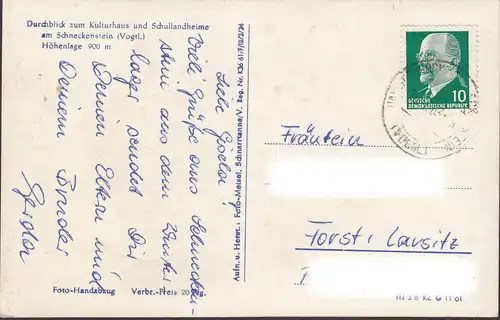 Durchblick zum Kulturhaus und Schullandheime
am Schneckenstein (Vogtl.)
Höhenlage 900 m
Liebe Gisela!
Viele Grüße aus Schnecken-
stein aus dem Winter
lager sendet Dir
Deinen Eltern und
Deinem Bruder
Gerda
Foto-Handabzug Verbr.-Preis 20 Pfg.
Aufn. u. Herst.: Foto-Meisel, Schnarrtanne/V. Reg. Nr. K36 61/7/II/2/34
10
DEUTSCHE
DEMOKRATISCHE REPUBLIK
Fräulein
Forst i Lausitz
III 5 8 Kc G 11 61